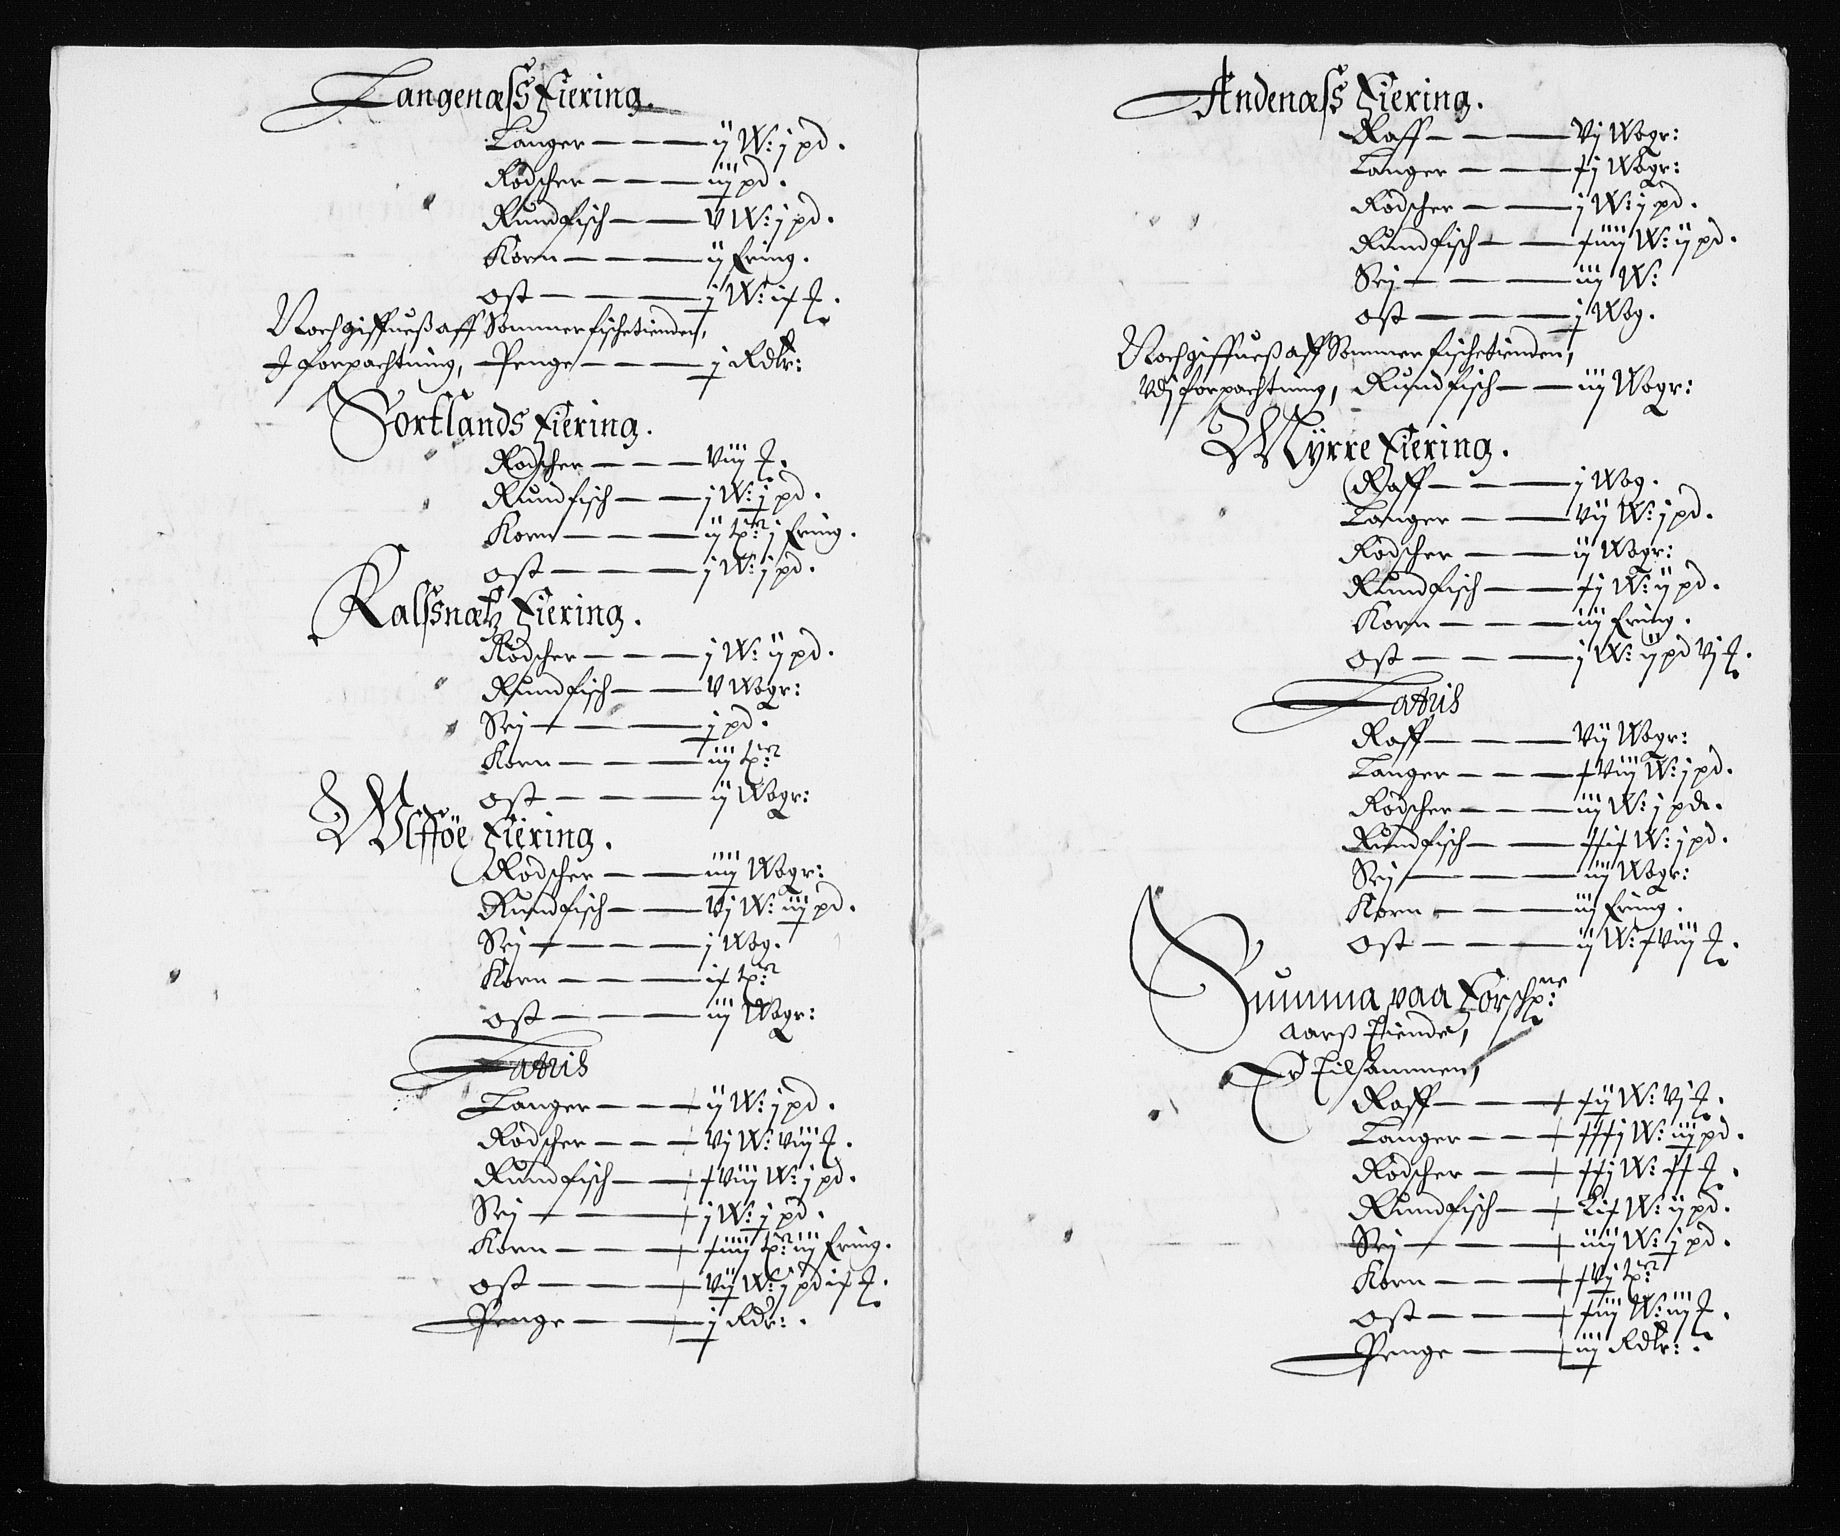 Langenæss Fiering.
Langer — — — ij W: j pd.
Rødscher — — — iij pd.
Rundfisch — — V W: j pd.
Korn — — — ij Ering.
Ost — — — j W: ix ℔.
Noch giffues aff Sommerfischetienden,
I forpachtning, Penge — — — j Rdlr:
Sortlands Fiering.
Rødscher — — — Viij ℔.
Rundfisch — — j W: j pd.
Korn — — — ij tpr: j Ering.
Ost — — — j W: j pd.
Kalssnætz Fiering.
Rødscher — — — j W: ij pd.
Rundfisch — — V Wogr:
Sej — — — j pd.
Korn — — — iij tpr
Ost — — — ij Wogr:
Wlfføe Fiering.
Rødscher — — iiij Wogr:
Rundfisch — — Vj W: iij pd.
Sej — — — j Wog.
Korn — — — ix tpr
Ost — — — iij Wogr:
Lateris
Langer — — ij W: j pd.
Rødscher — — Vj W: Viij ℔.
Rundfisch — — xViij W: j pd.
Sej — — — j W: j pd.
Korn — — — xiiij tpr: iij Ering.
Ost — — — Vij W: j pd ix ℔.
Penge — — — j Rdr:
Andenæss Fiering.
Raff — — — Vj Wogr:
Langer — — — xj Wogr:
Rødscher — — — j W: j pd.
Rundfisch — — xiiij W: ij pd.
Sej — — — iij W:
Ost — — — j Wog.
Noch giffues aff Sommerfischetienden,
Vdj forpachtning, Rundfisch — — iij Wogr:
Mÿrre Fiering.
Raff — — — j Wog.
Langer — — Vij W: j pd.
Rødscher — — — ij Wogr:
Rundfisch — — xj W: ij pd.
Korn — — — iij Ering.
Ost — — — j W: ij pd Vj ℔.
Lateris
Raff — — — Vij Wogr:
Langer — — — xViij W: j pd.
Rødscher — — — iij W: j pd.
Rundfisch — — xxix W: j pd.
Sej — — — iij Wogr:
Korn — — — iij Ering.
Ost — — — ij W: xViij ℔.
Summa paa Forschpne:
Aars Tiende,
Er Tilsammen,
Raff — — — xij W: Vj ℔.
Langer — — xxxj W: iij pd.
Rødscher — — xxj W: xx ℔.
Rundfisch — — Lix W: ij pd.
Sej — — — iiij W: j pd.
Korn — — — xVj tpr
Ost — — — xiij W: iij ℔.
Penge — — — iij Rdlr: